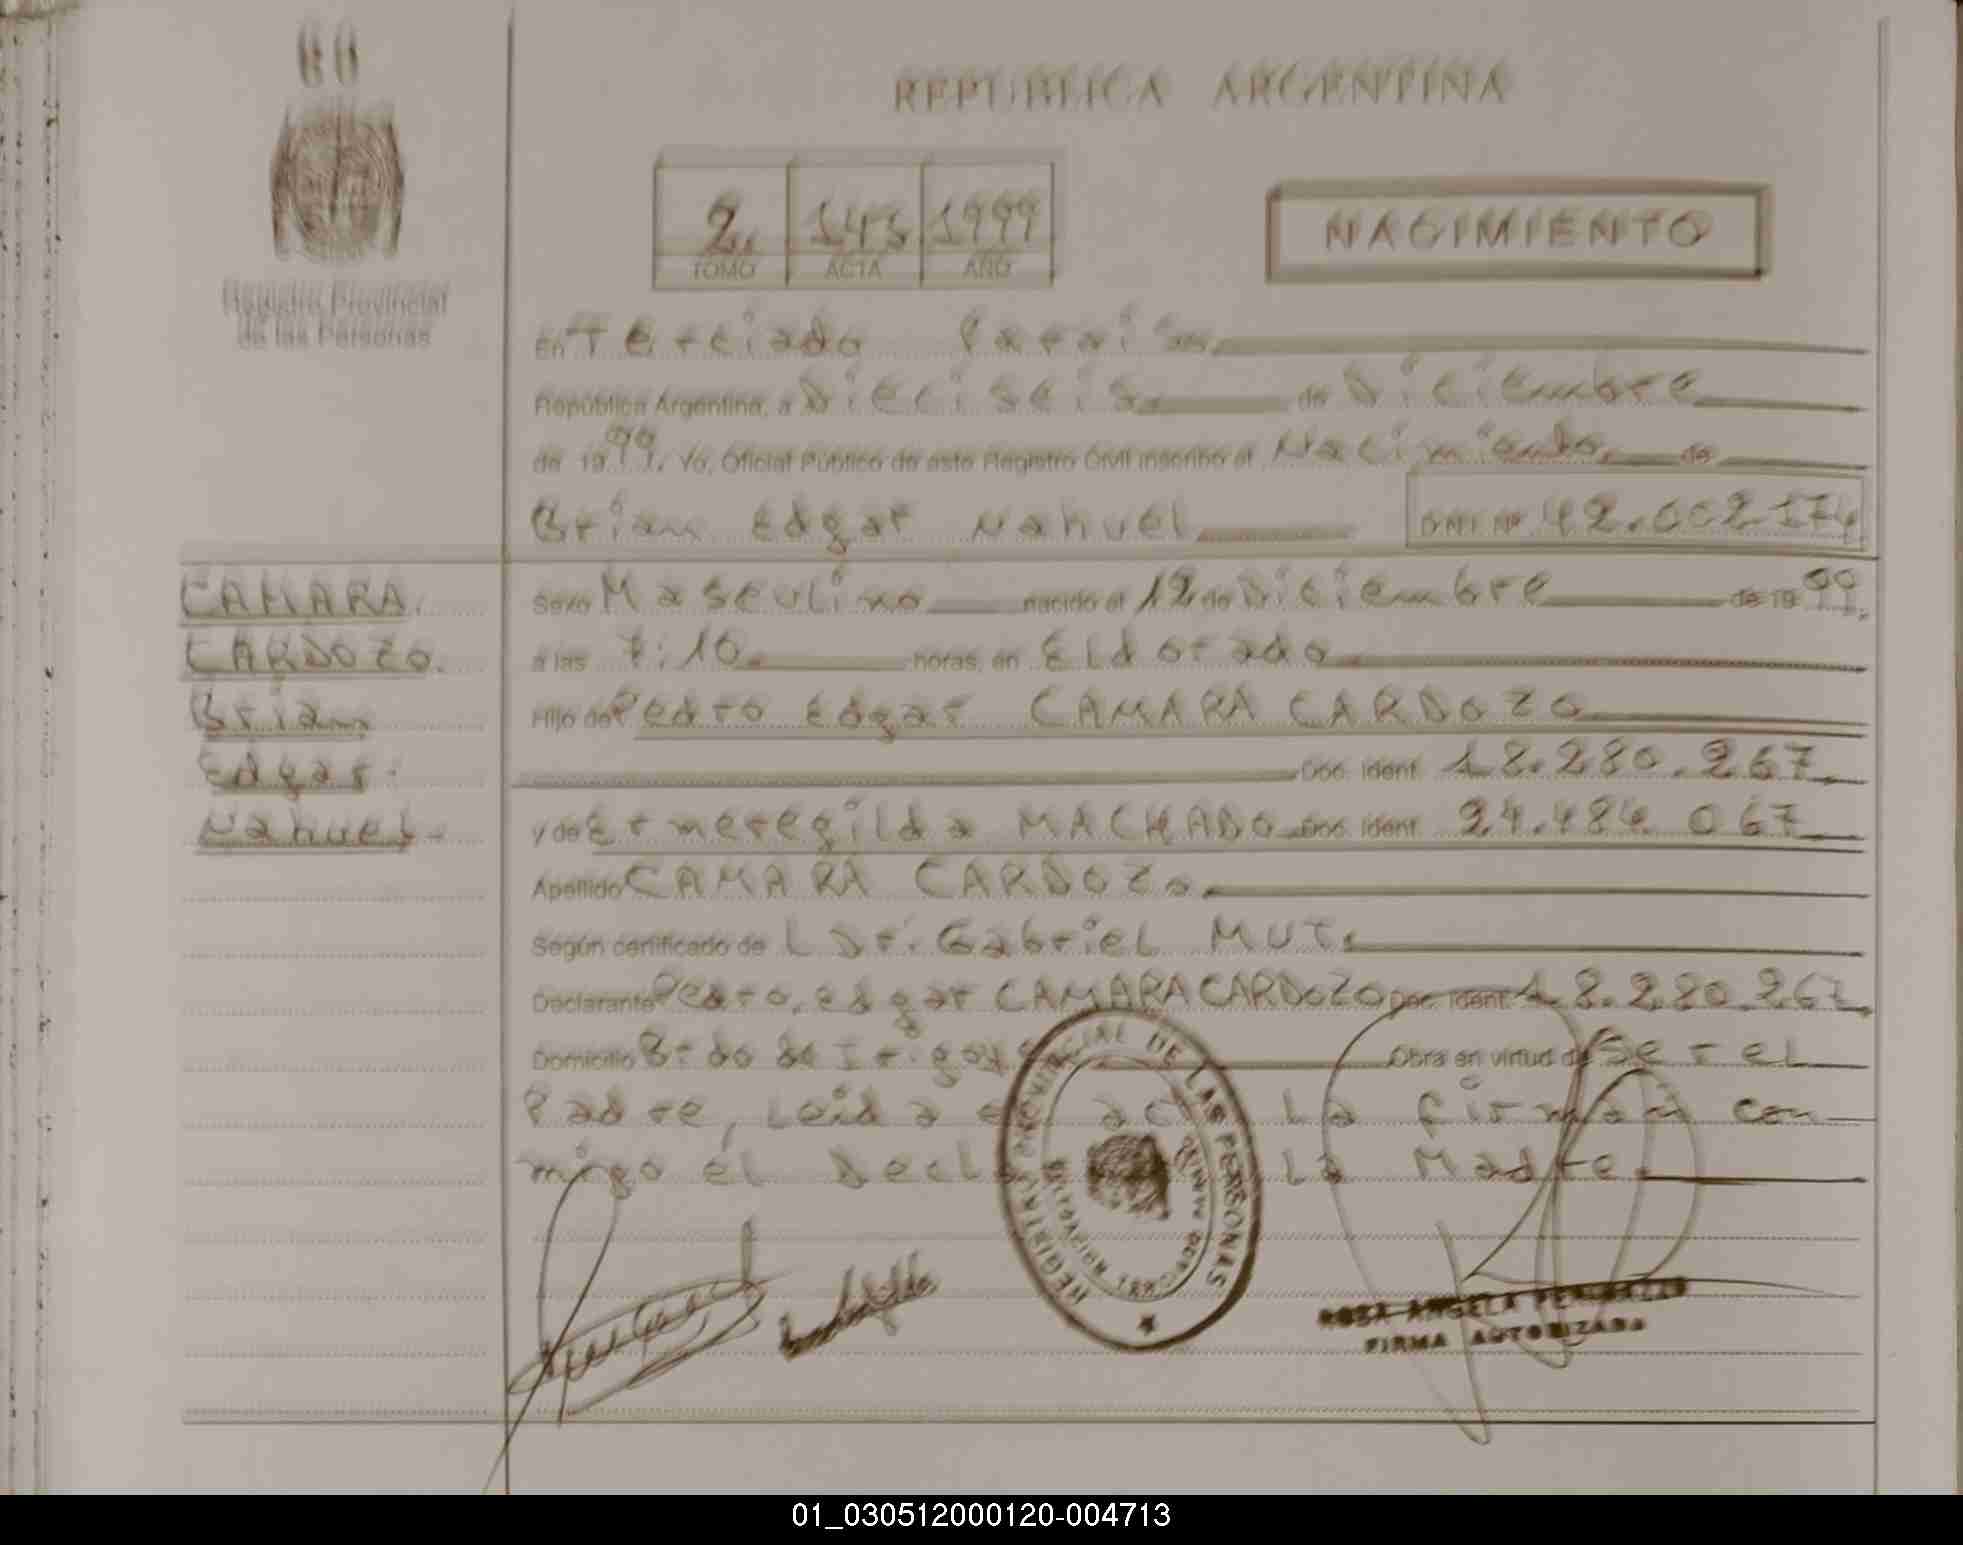 60
REPUBLICA ARGENTINA
2. 145 1999
TOMO ACTA AÑO
NACIMIENTO
Registro Provincial
de las Personas
En Terciado Paraíso
República Argentina, a Dieciseis. de Diciembre
de 1999. Yo, Oficial Público de este Registro Civil inscribo el Nacimiento. de
Brian Edgar Nahuel DNI Nº 42.002.174
CAMARA. Sexo Masculino nacido el 12 de Diciembre de 1999.
CARDOZO. a las 7:10. horas, en Eldorado
Brian Hijo de Pedro Edgar CAMARA CARDOZO
Edgar. Doc. Ident. 18.280.267
Nahuel. y de Ermeregilda MACHADO Doc. Ident. 24.484.067
Apellido CAMARA CARDOZO.
Según certificado de L Dr. Gabriel MUT.
Declarante Pedro, edgar CAMARA CARDOZO Doc. Ident. 18.280.267
Domicilio Bdo de Obra en virtud de Ser el
Padre, Leida el La firman con
migo el La Madre.
REGISTRO PROVINCIAL DE LAS PERSONAS
ROSA ANGELA
FIRMA AUTORIZADA
01_030512000120-004713